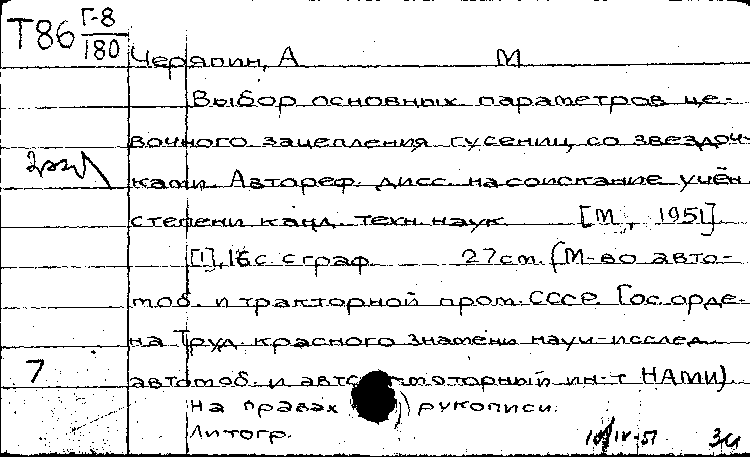 Т86 Г-8
180
Черяпин, А М
Выбор основных параметров це-
вочного зацепления гусениц со звездоч-
ками. Автореф. дисс. на соискание учён
степени канд. техн. наук [М., 1951]
[1], 16 с. с граф. 27 см. (М-во авто-
моб. и тракторной пром. СССР. Гос. орде-
на Труд. красного знамени науч-исслед.
7 автомоб. и авто моторный ин-т НАМИ)
На правах рукописи.
Литогр.
10/IV-51 ЗИ